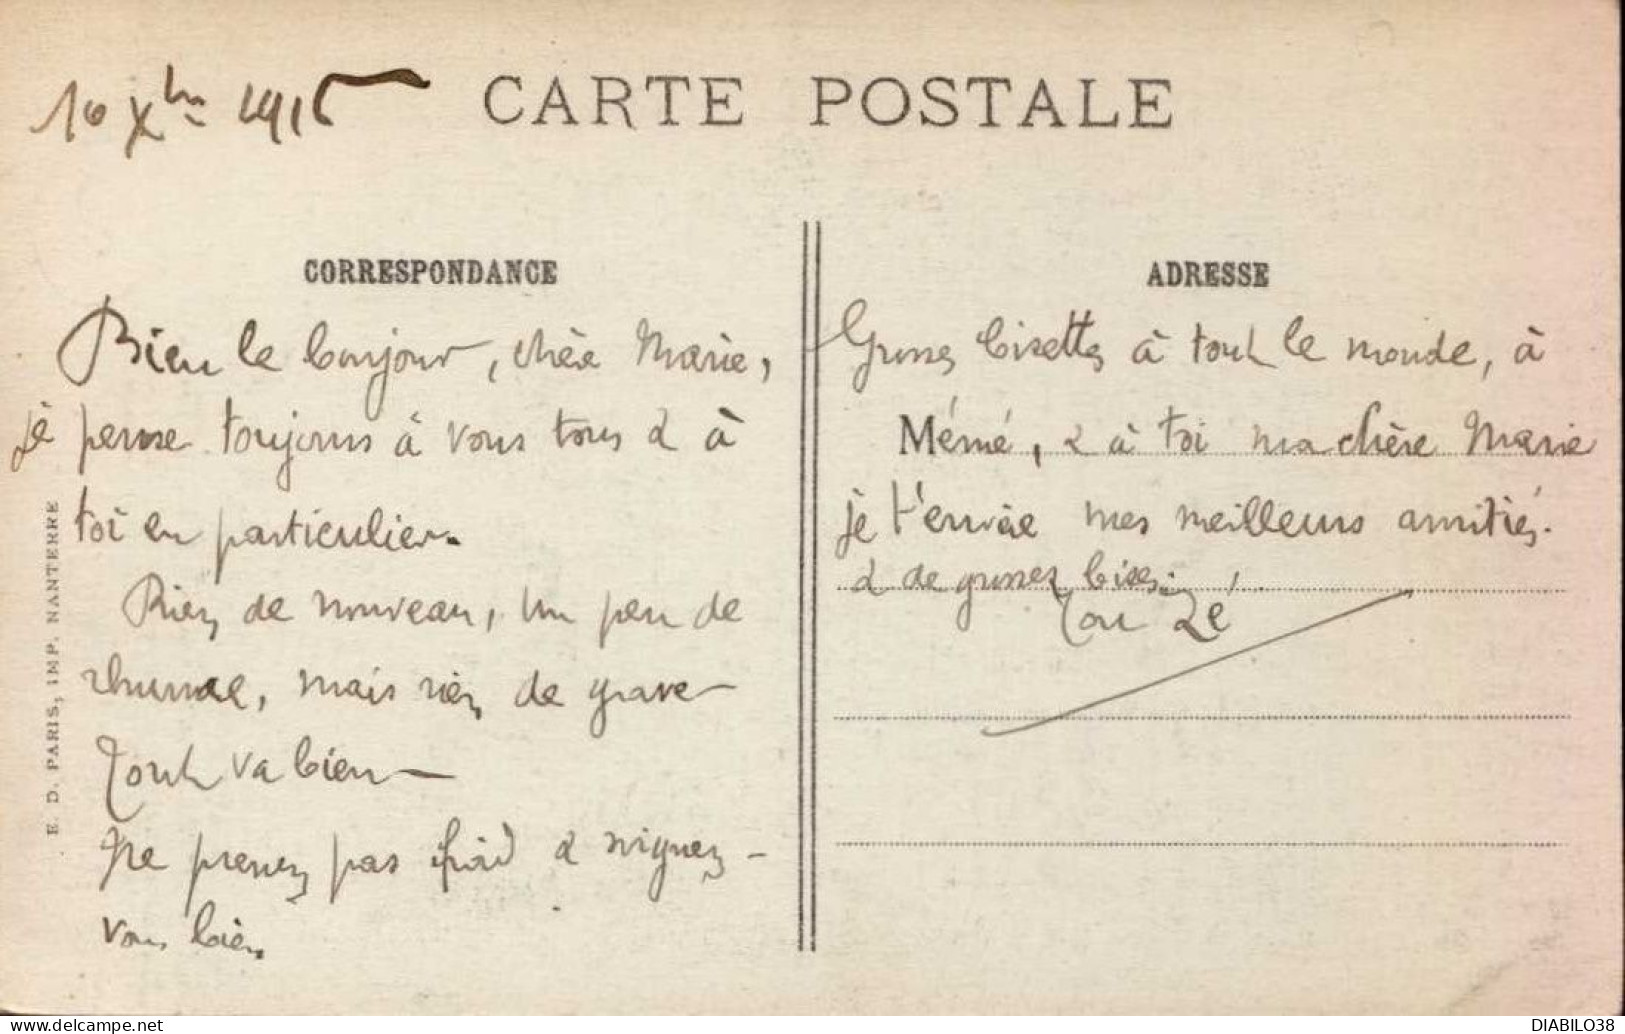 10 Xbre 1915
CARTE POSTALE
CORRESPONDANCE
Bien le bonjour, chère Marie,
je pense toujours à vous tous & à
toi en particulier.
Rien de nouveau, un peu de
rhume, mais rien de grave
Tout va bien —
Ne prenez pas froid & soignez-
vous bien
E. D. PARIS, IMP. NANTERRE
ADRESSE
Grosses bisettes à tout le monde, à
Mémé, & à toi ma chère Marie
je t'envoie mes meilleurs amitiés.
& de grosses bises.
Ton Zé
DIABILO38
www.delcampe.net